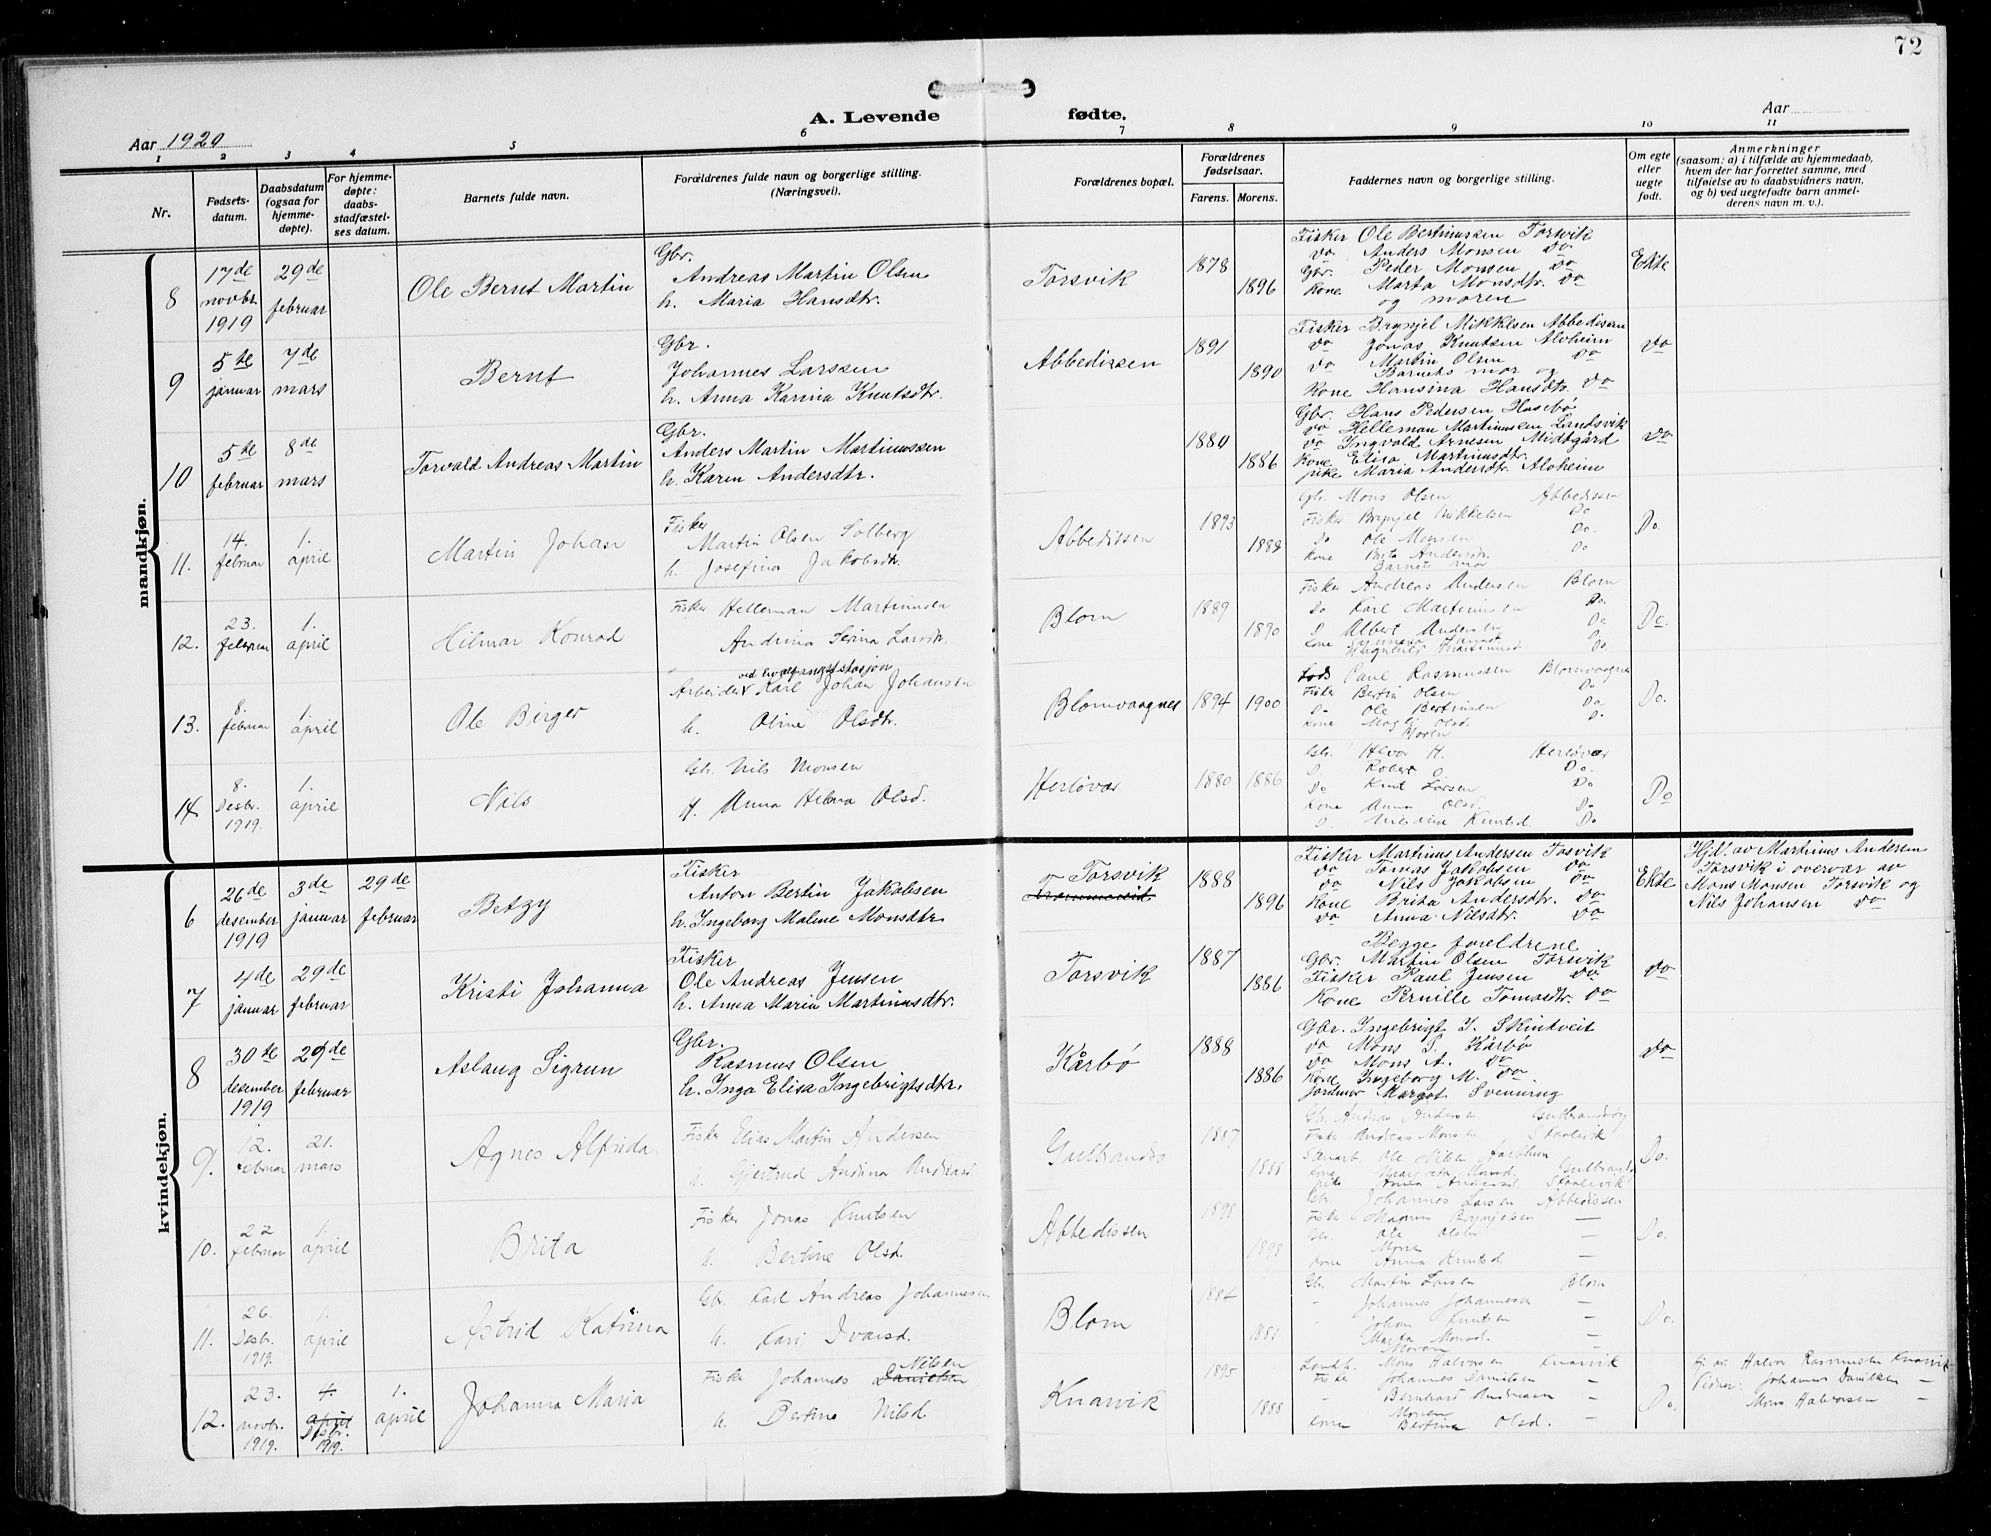 72
A. Levende fødte.
Aar 1920
Aar
1 2 3 4 5 6 7 8 9 10 11
Nr.
Fødsels-
datum.
Daabsdatum
(ogsaa for
hjemme-
døpte).
For hjemme-
døpte:
daabs-
stadfæstel-
ses datum.
Barnets fulde navn.
Forældrenes fulde navn og borgerlige stilling.
(Næringsvei).
Forældrenes bopæl.
Forældrenes
fødselsaar.
Farens. Morens.
Faddernes navn og borgerlige stilling.
Om egte
eller
uegte
født.
Anmerkninger
(saasom: a) i tilfælde av hjemmedaab,
hvem der har forrettet samme, med
tilføielse av to daabsvidners navn,
og b) ved uegtefødte barn anmel-
derens navn m. v.).
mandkjøn.
8
17de
novbr.
1919
29de
februar
Ole Bernt Martin
Gbr.
Andreas Martin Olsen
h. Maria Hansdtr.
Torsvik
1878
1896
Fisker Ole Bertinussen Torsvik
do Anders Monsen do
Gbr. Peder Monsen do
Kone Marta Monsdtr. do
og moren
Ekte
9
5te
januar
7de
mars
Bernt
Gbr.
Johannes Larssen
h. Anna Karina Knutsdtr.
Abbedissen
1891
1890
Fisker Brynjel Mikkelsen Abbedissen
do Jonas Knutsen Aloheim
do Martin Olsen do
Barnets mor og
Kone Hansina Hansdtr. do
do
10
5te
februar
8de
mars
Torvald Andreas Martin
Gbr.
Anders Martin Martinussen
h. Karen Andersdtr.
1880
1886
Gbr. Hans Pedersen Husebø
do Helleman Martinussen Landsvik
do Ingvald Arnesen Midtgård
Kone Elisa Martinusdtr.
pike Maria Andersdtr. Aloheim
do
11.
14.
februar
1.
april
Martin Johan
Fisker
Martin Olsen Solberg
h. Josefina Jakobsdtr.
Abbedissen
1893
1888
Gbr. Mons Olsen Abbedissen
Fisker Brynjel Mikkelsen Do
Do Ole Monsen Do.
Kone Brita Andersdtr. Do
Barnet mor
Do.
12.
23.
februar
1.
april
Hilmar Konrad
Fisker Helleman Martinussen
Andrina Serina Larsdtr.
Blom
1889
1890
Fisker Andreas Andersen Blom
Do Karl Martinussen Do.
D Albert Andersen Do
Do
Do.
Do.
13.
8.
februar
1.
april
Ole Birger
ved hvalfangststasjon
Arbeider Karl Johan Johansen
h. Oline Olsdtr.
Blomvaagnes
1894
1900
Lods Paul Rasmussen Blomvaagnes
Fisker Bertin Olsen Do
Do Ole Bertinsen Do
Kone Magli Olsd. Do.
Moren
Do.
14
8.
Desbr.
1919.
1.
april
Nils
Gbr. Nils Monsen
H. Anna Helena Olsd.
Herløvær
1880
1886
Gbr. Halvor H. Herløvær
D Robert O. Do.
Do Knut Larsen Do
Kone Anna Olsd. Do
D. Knutsd. Do
Do
kvindekjøn.
6
26de
desember
1919
3de
januar
29de
februar
Betzy
Fisker
Anton Bertin Jakobsen
h. Ingeborg Malene Monsdtr.
Torsvik
1888
1896
Fisker Martinus Andersen Torsvik
do Tomas Jakobsen do
do Nils Jakobsen do
Kone Brita Andersdtr. do
do Anna Nilsdtr. do
Ekte
Hjd. av Martinus Andersen
Torsvik i overvær av
Mons Monsen Torsvik og
Nils Johansen do
7
4de
januar
29de
februar
Kristi Johanna
Fisker
Ole Andreas Jensen
h. Anna Maria Martinusdtr.
Torsvik
1887
1886
Begge foreldrene
Gbr. Martin Olsen Torsvik
Fisker Paul Jensen do
Kone Pernille Tomasdtr. do
do
8
30te
desember
1919
29de
februar
Aslaug Sigrun
Gbr.
Rasmus Olsen
h. Inga Elisa Ingebrigtsdtr.
Kårbø
1888
1886
Gbr. Ingebrigt J. Skintveit
do Mons S. Kårbø
do Mons A. do
Kone Ingeborg M. do
jordmor Margot Svenning
do
9.
12.
februar
21.
mars
Agnes Alfrida
Fisker Elias Martin Andersen
h. Gjertrud Andina Andreasd.
Gulbrandsø
1887
1888
Gb. Andreas Andersen Gulbrandsøy
Fisker Andreas Monsen Skaalevik
Do.
10.
22
februar
1.
april
Brita
Fisker Jonas Knutsen
h. Bertine Olsd.
Abbedissen
1898
1898
Gbr. Johannes Larsen Abbedissen
Fisker Magnus Brynjelsen —
Gbr. Ole Olsen —
Moren
Kone Anna Knutsd. —
Do.
11.
26.
Desbr.
1919.
1.
april
Astrid Katrina
Gbr. Karl Andreas Johannesen
h. Kari Ivarsd.
Blom
1884
1881
Gb. Martin Larsen Blom
- Johannes Johannesen —
- Johan Knutsen —
Marta Monsd. —
Moren
Do.
12.
23.
novbr.
1919.
4.
april
Desbr.
1919.
1.
april
Johanna Maria
Nilsen
Fisker Johannes Danielsen
h. Bertine Nilsd.
Knarvik
1895
1888
Landh. Mons Halvorsen Knarvik
Fisker Johannes Danielsen —
- Bernhard Andreasen —
Moren
Kone Bertina Olsd. —
Do.
Hj. av Halvor Rasmussen Knarvik
Vidner: Johannes Danielsen —
Mons Halvorsen —